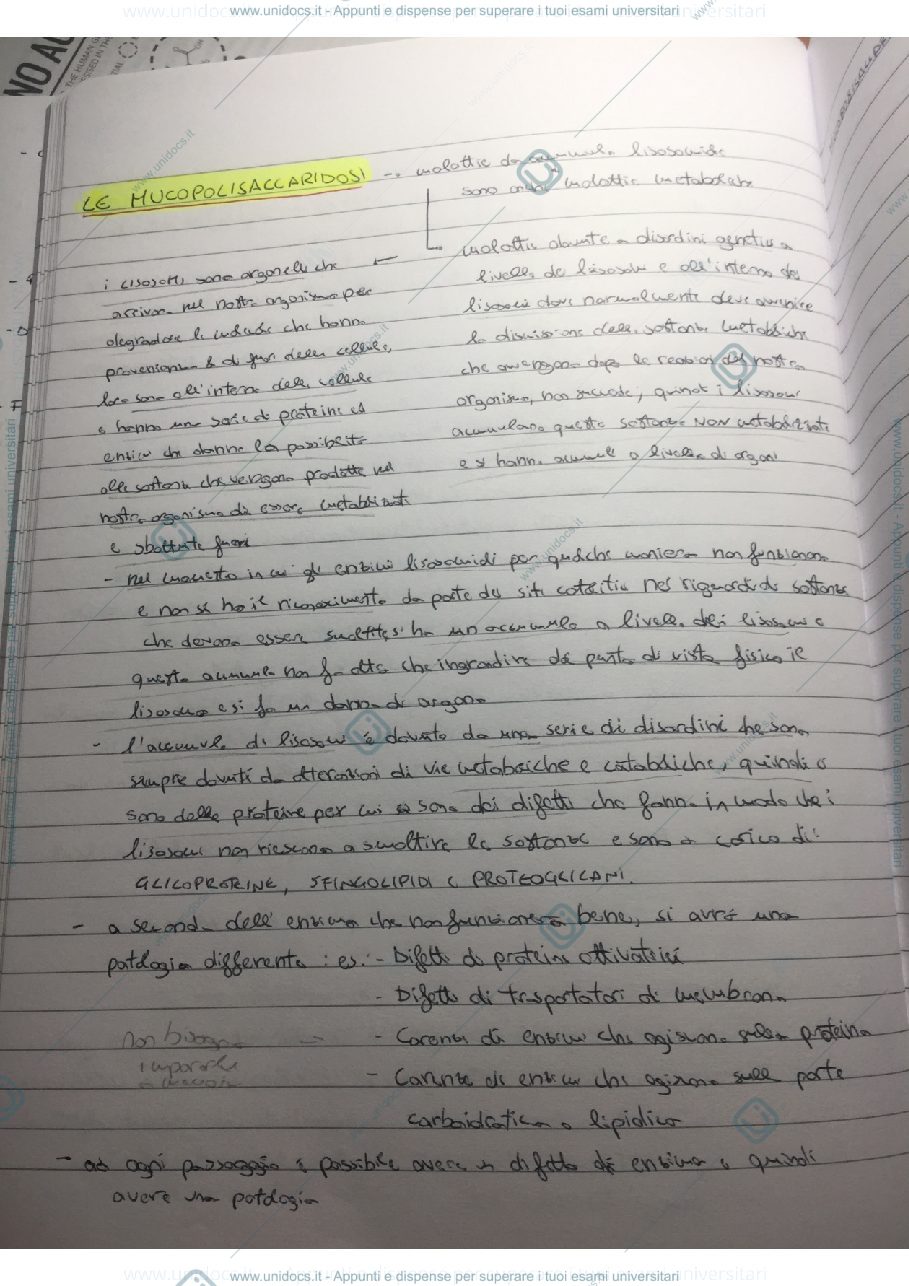 www.unidocs.it - Appunti e dispense per superare i tuoi esami universitari
NO AC
THE HUMAN G
LE MUCOPOLISACCARIDOSI → malattie da accumulo lisosomide
sono anche malattie metaboliche
malattie dovute a disordini genetici a
livello dei lisosomi e all'interno dei
lisosomi dove normalmente deve avvenire
la dismissione delle sostanze metaboliche
che avvengono dopo le reazioni del nostro
organismo, non succede, quindi i lisosomi
accumulano queste sostanze NON metabolizzate
e si hanno accumuli a livello di organi
i lisosomi sono organelli che
arrivano nel nostro organismo per
degradare le molecole che hanno
provenienza di fuori della cellula,
loro sono all'interno delle cellule
e hanno una serie di proteine ed
enzimi che danno la possibilità
alle sostanze che vengono prodotte nel
nostro organismo di essere metabolizzate
e sbattute fuori
- nel momento in cui gli enzimi lisosomiali per qualche maniera non funzionano
e non si ha il riconoscimento da parte dei siti catalitici nei riguardi di sostanze
che devono essere smaltite si ha un accumulo a livello dei lisosomi e
questo accumulo non fa altro che ingrandire dal punto di vista fisico il
lisosoma e si fa un danno di organo
- l'accumulo di lisosomi è dovuto da una serie di disordini che sono
sempre dovuti da alterazioni di vie metaboliche e cataboliche, quindi ci
sono delle proteine per cui ci sono dei difetti che fanno in modo che i
lisosomi non riescono a smaltire le sostanze e sono a carico di:
GLICOPROTEINE, SFINGOLIPIDI e PROTEOGLICANI.
- a seconda dell'enzima che non funzionerà bene, si avrà una
patologia differente : es: - Difetto di proteine attivatrici
- Difetto di trasportatori di membrana
non bisogna → - Carenza di enzimi che agiscono sulla proteina
impararle
a memoria
- Carenze di enzimi che agiscono sulla parte
carboidratica o lipidica
- ad ogni passaggio è possibile avere un difetto di enzima e quindi
avere una patologia
www.unidocs.it - Appunti e dispense per superare i tuoi esami universitari